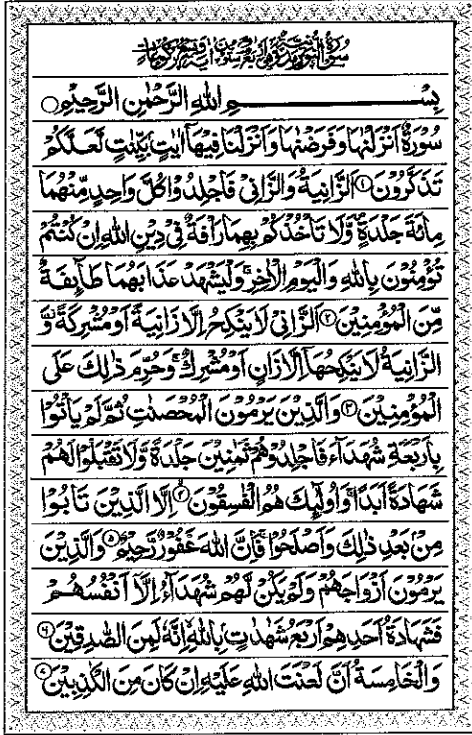 سُوْرَةُ النُّوْرِ مَدَنِيَّةٌ
بِسْمِ اللهِ الرَّحْمٰنِ الرَّحِيْمِ
سُوْرَةٌ اَنْزَلْنٰهَا وَفَرَضْنٰهَا وَاَنْزَلْنَا فِيْهَآ اٰيٰتٍۭ بَيِّنٰتٍ لَّعَلَّكُمْ
تَذَكَّرُوْنَ ۱ اَلزَّانِيَةُ وَالزَّانِيْ فَاجْلِدُوْا كُلَّ وَاحِدٍ مِّنْهُمَا
مِائَةَ جَلْدَةٍ ۪ وَّلَا تَاْخُذْكُمْ بِهِمَا رَاْفَةٌ فِيْ دِيْنِ اللهِ اِنْ كُنْتُمْ
تُؤْمِنُوْنَ بِاللهِ وَالْيَوْمِ الْاٰخِرِ ۚ وَلْيَشْهَدْ عَذَابَهُمَا طَآئِفَةٌ
مِّنَ الْمُؤْمِنِيْنَ ۲ اَلزَّانِيْ لَا يَنْكِحُ اِلَّا زَانِيَةً اَوْ مُشْرِكَةً ۫ وَّ
الزَّانِيَةُ لَا يَنْكِحُهَآ اِلَّا زَانٍ اَوْ مُشْرِكٌ ۚ وَحُرِّمَ ذٰلِكَ عَلَى
الْمُؤْمِنِيْنَ ۳ وَالَّذِيْنَ يَرْمُوْنَ الْمُحْصَنٰتِ ثُمَّ لَمْ يَاْتُوْا
بِاَرْبَعَةِ شُهَدَآءَ فَاجْلِدُوْهُمْ ثَمٰنِيْنَ جَلْدَةً وَّلَا تَقْبَلُوْا لَهُمْ
شَهَادَةً اَبَدًا ۚ وَاُولٰٓئِكَ هُمُ الْفٰسِقُوْنَ ۴ اِلَّا الَّذِيْنَ تَابُوْا
مِنْۢ بَعْدِ ذٰلِكَ وَاَصْلَحُوْا ۚ فَاِنَّ اللهَ غَفُوْرٌ رَّحِيْمٌ ۵ وَالَّذِيْنَ
يَرْمُوْنَ اَزْوَاجَهُمْ وَلَمْ يَكُنْ لَّهُمْ شُهَدَآءُ اِلَّآ اَنْفُسُهُمْ
فَشَهَادَةُ اَحَدِهِمْ اَرْبَعُ شَهٰدٰتٍۭ بِاللهِ ۙ اِنَّهٗ لَمِنَ الصّٰدِقِيْنَ ۶
وَالْخَامِسَةُ اَنَّ لَعْنَتَ اللهِ عَلَيْهِ اِنْ كَانَ مِنَ الْكٰذِبِيْنَ ۷